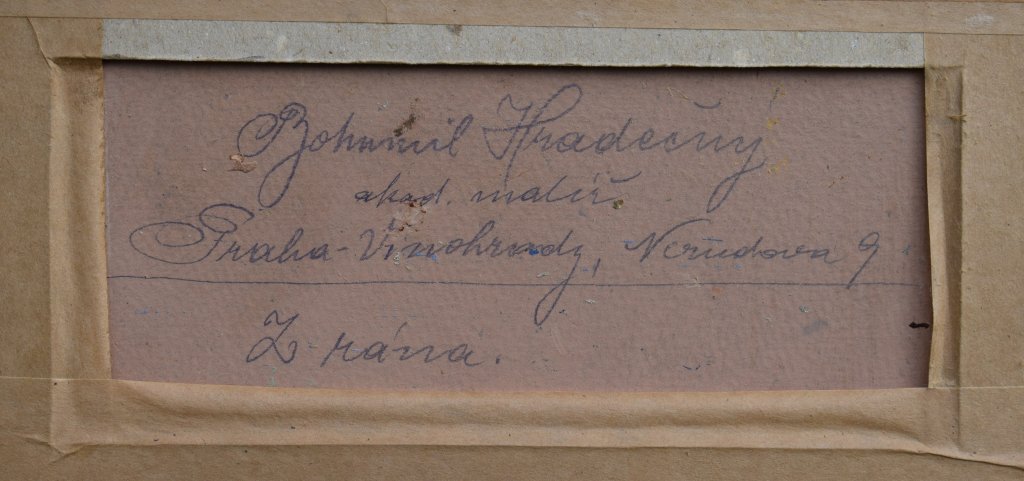 Bohumil Hradečný
akad. malíř
Praha-Vinohrady, Nerudova 9
Z rána.